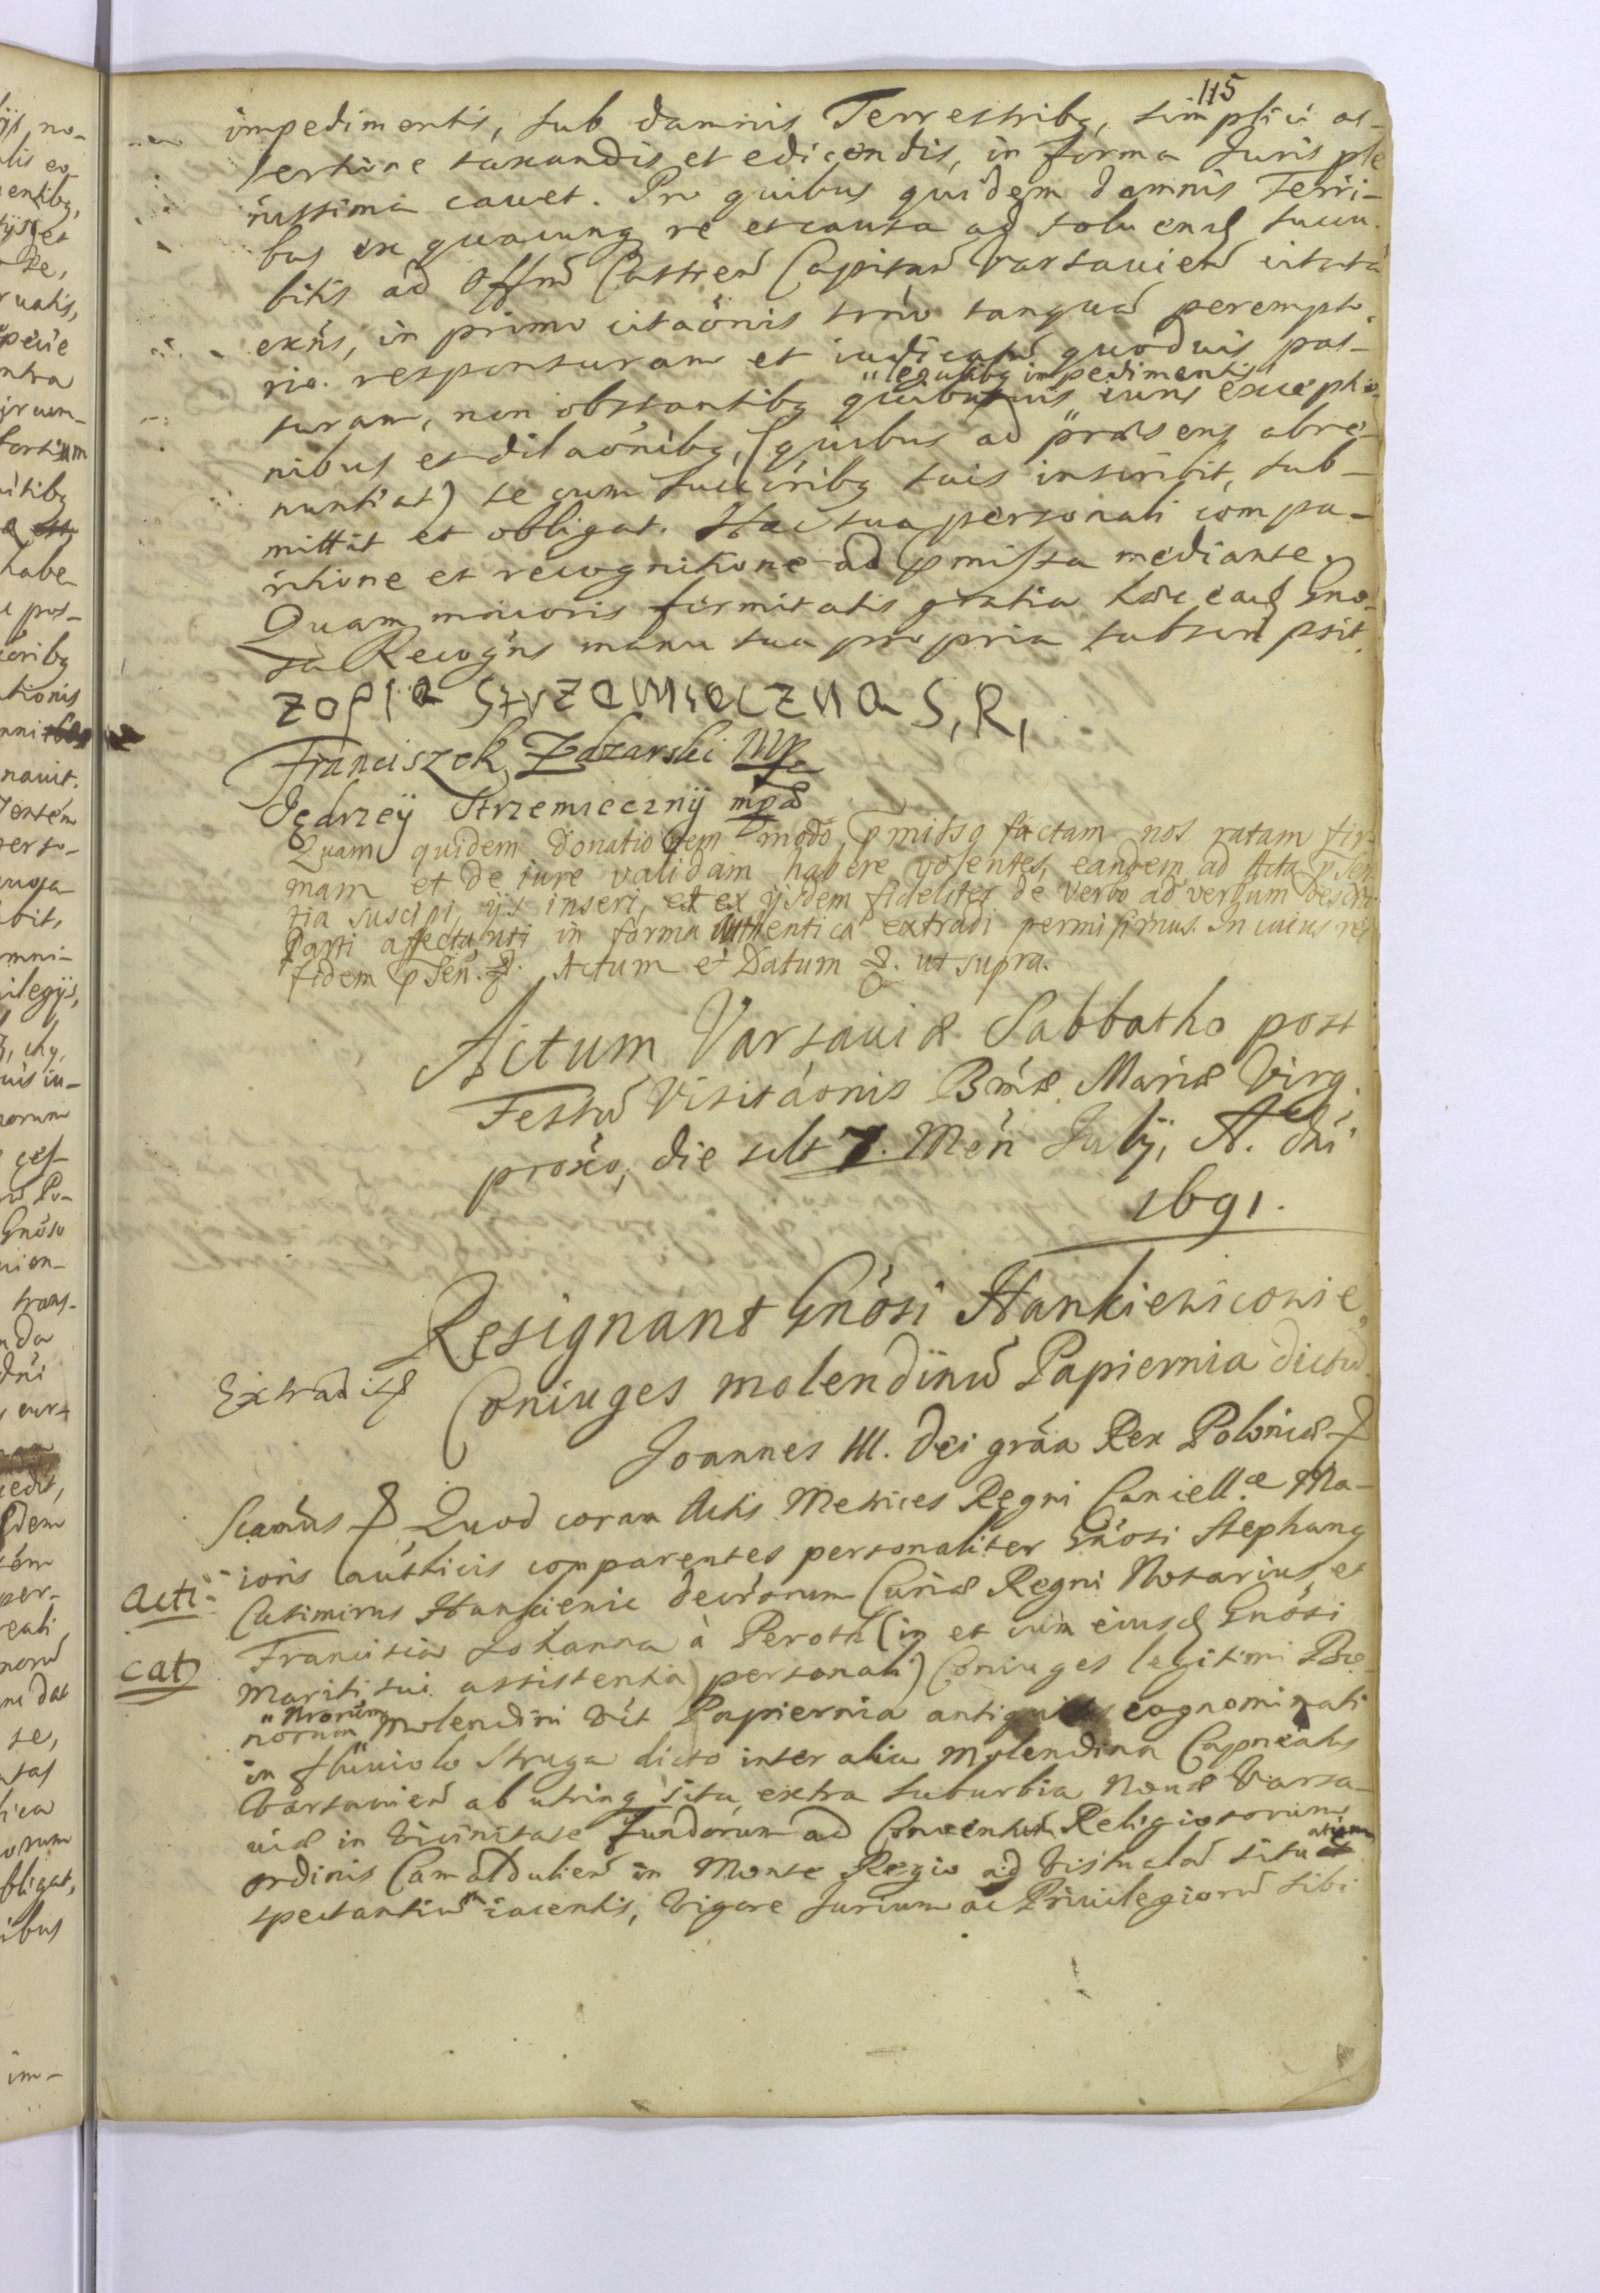 115
impedimentis, sub damnis Terrestribq, simplici as-
sertione taxandis et edicendis, in forma Juris ple
nissima cavet. Pro quibus quidem damnis Terri-
bus ex quacunq re et causa ad solvend succu
bitis ad Offm Castren Capitan Varsavien citata
exns, in primo citaonis trno tanqua perempto
rio. responsuram et iudicatu quoduis pas-
suram, non obstantibq quibusuis iuris exceptio
"legalibq impedimentis
nibus et dilaonibq, (quibus ad präsens abre-
nuntiat) se cum succoribq suis inscribit, sub-
mittit et obligat. Hac sua personali compa-
ritione et recognitione ad pmissa mediante.
Quam maioris firmitatis gratia hæc ead Gno-
sa Recogns manu sua propria subscripsit.
Zofia Strzemieczna S, R,
Franciszek Zdzarski Mp
Jędrzeÿ Strzemiecznÿ mpd
Quam quidem donationem modo pmisso factam nos ratam fir-
mam et de iure validam habere volentes, eandem ad Acta pSen
tia suscipi, ijs inseri, et ex ijsdem fideliter de verbo ad verbum descri
Parti affectanti in forma authentica extradi permisimus. In cuius rei
fidem pSen. &. Actum et Datum &. ut supra.
Actum Varsaviæ Sabbatho post
Festu Visitaonis Bmæ Mariæ Virg.
proxo, die scilt 7. Men Julij, A. dni
1691.
Resignant Gnosi Hankiewicowie,
Coniuges molendinu Papiernia dictu
Extradit
Joannes III. Dei graa Rex Poloniæ &
Scamus & Quod coram Actis Metrices Regni Caniellæ Ma-
ioris authcis comparentes personaliter Gnosi Stephanq
Acti-
cat
Casimirus Hankienic decrorum Curiæ Regni Notarius, et
Francisca Johanna à Peroth (in et cum eiusd Gnosi
Mariti sui assistentia personali) Coniuges legitimi Bo-
norum Molendini Vlt Papiernia antiquitus cognominati
"Nrorum
in fluviolo Struga dicto inter alia Molendina Capnealus
Varsavien ab utrinq sita, extra suburbia Nouæ Varsa-
viæ in Vicinitate fundorum ad Conventum Religiosorum
ordinis Camaldulien in Monte Regio ad Vistulam situat
spectantiu iacentis, Vigore Jurium ac Privilegioru sibi